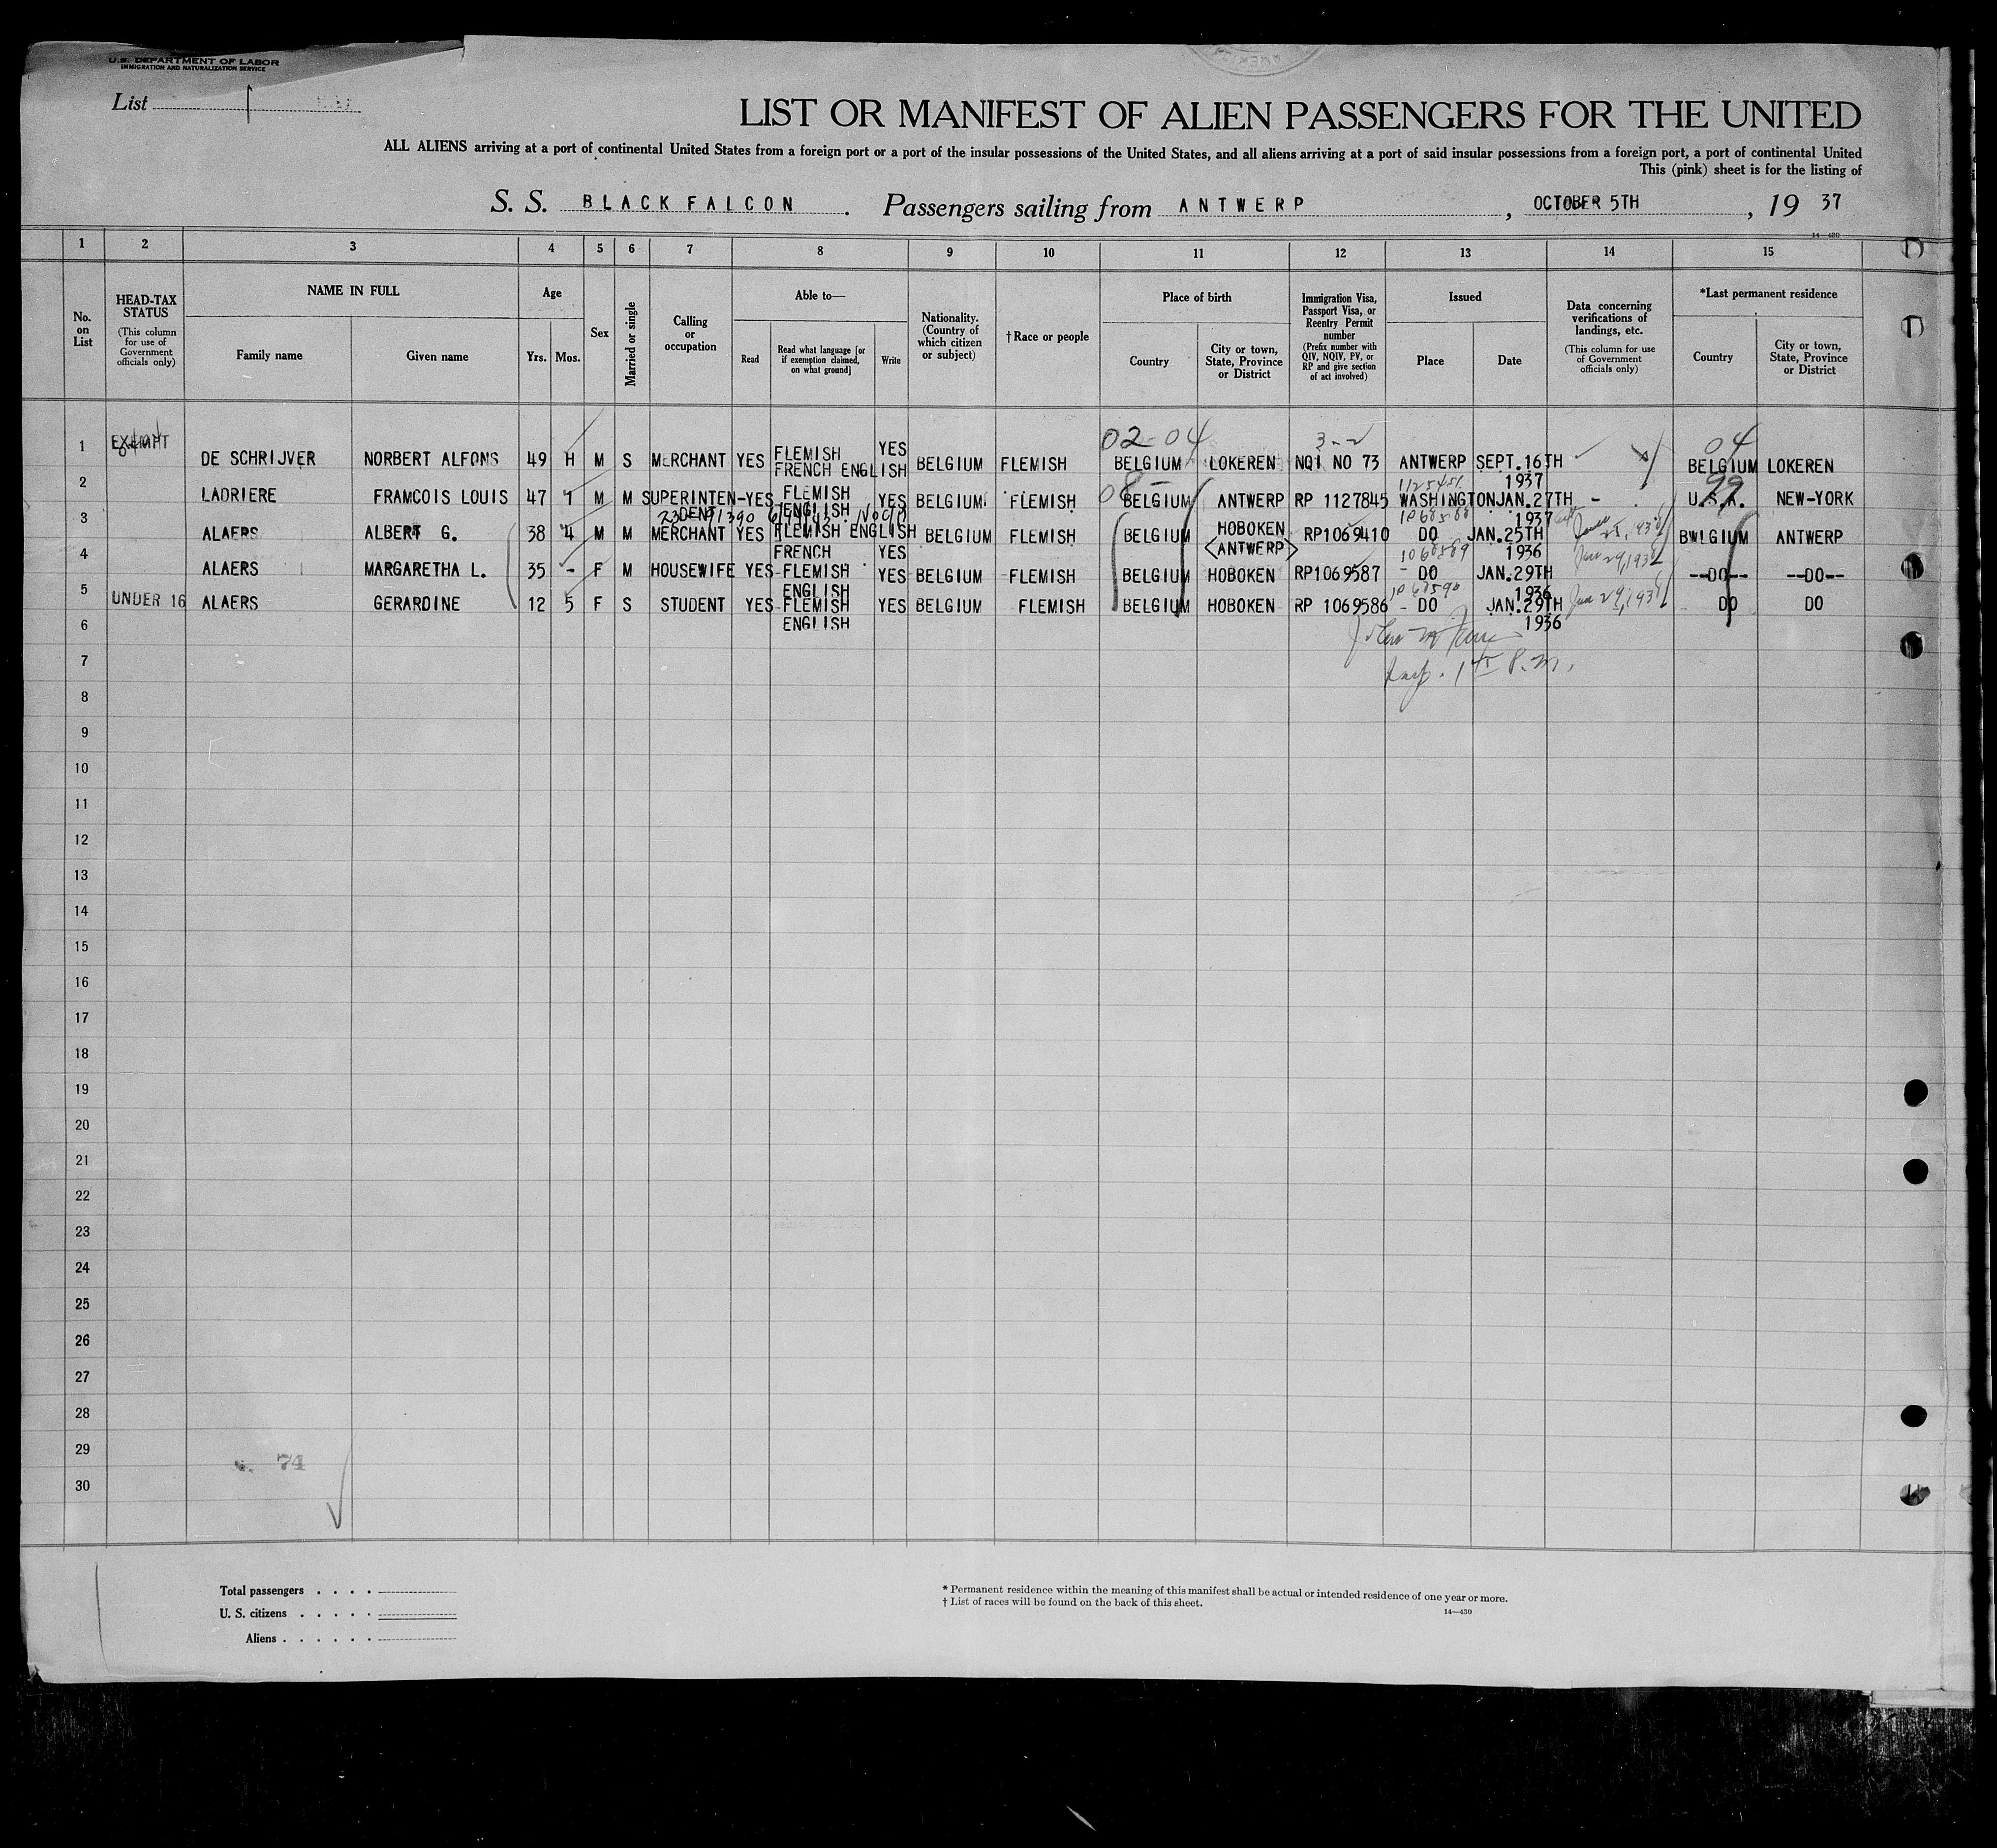 U.S. DEPARTMENT OF LABOR
IMMIGRATION AND NATURALIZATION SERVICE
List 1
LIST OR MANIFEST OF ALIEN PASSENGERS FOR THE UNITED
ALL ALIENS arriving at a port of continental United States from a foreign port or a port of the insular possessions of the United States, and all aliens arriving at a port of said insular possessions from a foreign port, a port of continental United
This (pink) sheet is for the listing of
S. S. BLACK FALCON . Passengers sailing from ANTWERP , OCTOBER 5TH , 19 37
14—430
1 2 3 4 5 6 7 8 9 10 11 12 13 14 15
No. on List
HEAD-TAX STATUS
(This column for use of Government officials only)
NAME IN FULL
Family name
Given name
Age
Yrs.
Mos.
Sex
Married or single
Calling or occupation
Able to—
Read
Read what language [or if exemption claimed, on what ground]
Write
Nationality. (Country of which citizen or subject)
†Race or people
Place of birth
Country
City or town, State, Province or District
Immigration Visa, Passport Visa, or Reentry Permit number
(Prefix number with QIV, NQIV, PV, or RP and give section of act involved)
Issued
Place
Date
Data concerning verifications of landings, etc.
(This column for use of Government officials only)
*Last permanent residence
Country
City or town, State, Province or District
02-04 3-2 04
1 EXEMPT DE SCHRIJVER NORBERT ALFONS 49 H M S MERCHANT YES FLEMISH FRENCH ENGLISH YES BELGIUM FLEMISH BELGIUM LOKEREN NQI NO 73 ANTWERP SEPT.16TH 1937 BELGIUM LOKEREN
08 1125451 99
2 LADRIERE FRAMCOIS LOUIS 47 1 M M SUPERINTEN-DENT YES FLEMISH ENGLISH YES BELGIUM FLEMISH BELGIUM ANTWERP RP 1127845 WASHINGTON JAN.27TH 1937 - U.S.A. NEW-YORK
1068588
3 ALAERS ALBERT G. 38 4 M M MERCHANT YES FLEMISH ENGLISH FRENCH YES BELGIUM FLEMISH BELGIUM HOBOKEN <ANTWERP> RP1069410 DO JAN.25TH 1936 BWLGIUM ANTWERP
1068589
4 ALAERS MARGARETHA L. 35 - F M HOUSEWIFE YES-FLEMISH ENGLISH YES BELGIUM FLEMISH BELGIUM HOBOKEN RP1069587 - DO JAN.29TH 1936 Jan 29, 193 --DO-- --DO--
1068590
5 UNDER 16 ALAERS GERARDINE 12 5 F S STUDENT YES-FLEMISH ENGLISH YES BELGIUM FLEMISH BELGIUM HOBOKEN RP 1069586 - DO JAN.29TH 1936 Jan 29, 193 DO DO
6
7 P.M.
8
9
10
11
12
13
14
15
16
17
18
19
20
21
22
23
24
25
26
27
28
29 74
30
Total passengers . . . .
U. S. citizens . . . . .
Aliens . . . . . .
* Permanent residence within the meaning of this manifest shall be actual or intended residence of one year or more.
† List of races will be found on the back of this sheet.
14—430